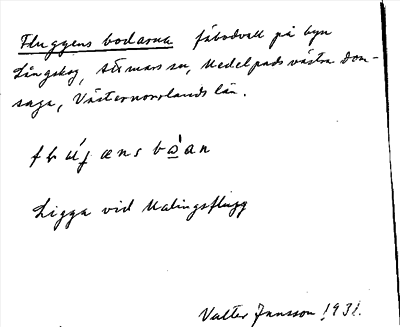 Fluggens bodarna fäbodvall på byn
Långskog, Attmars sn, Medelpads västra dom-
saga, Västernorrlands län.
Ligga vid Malingsflugg
Valter Jansson 1931.